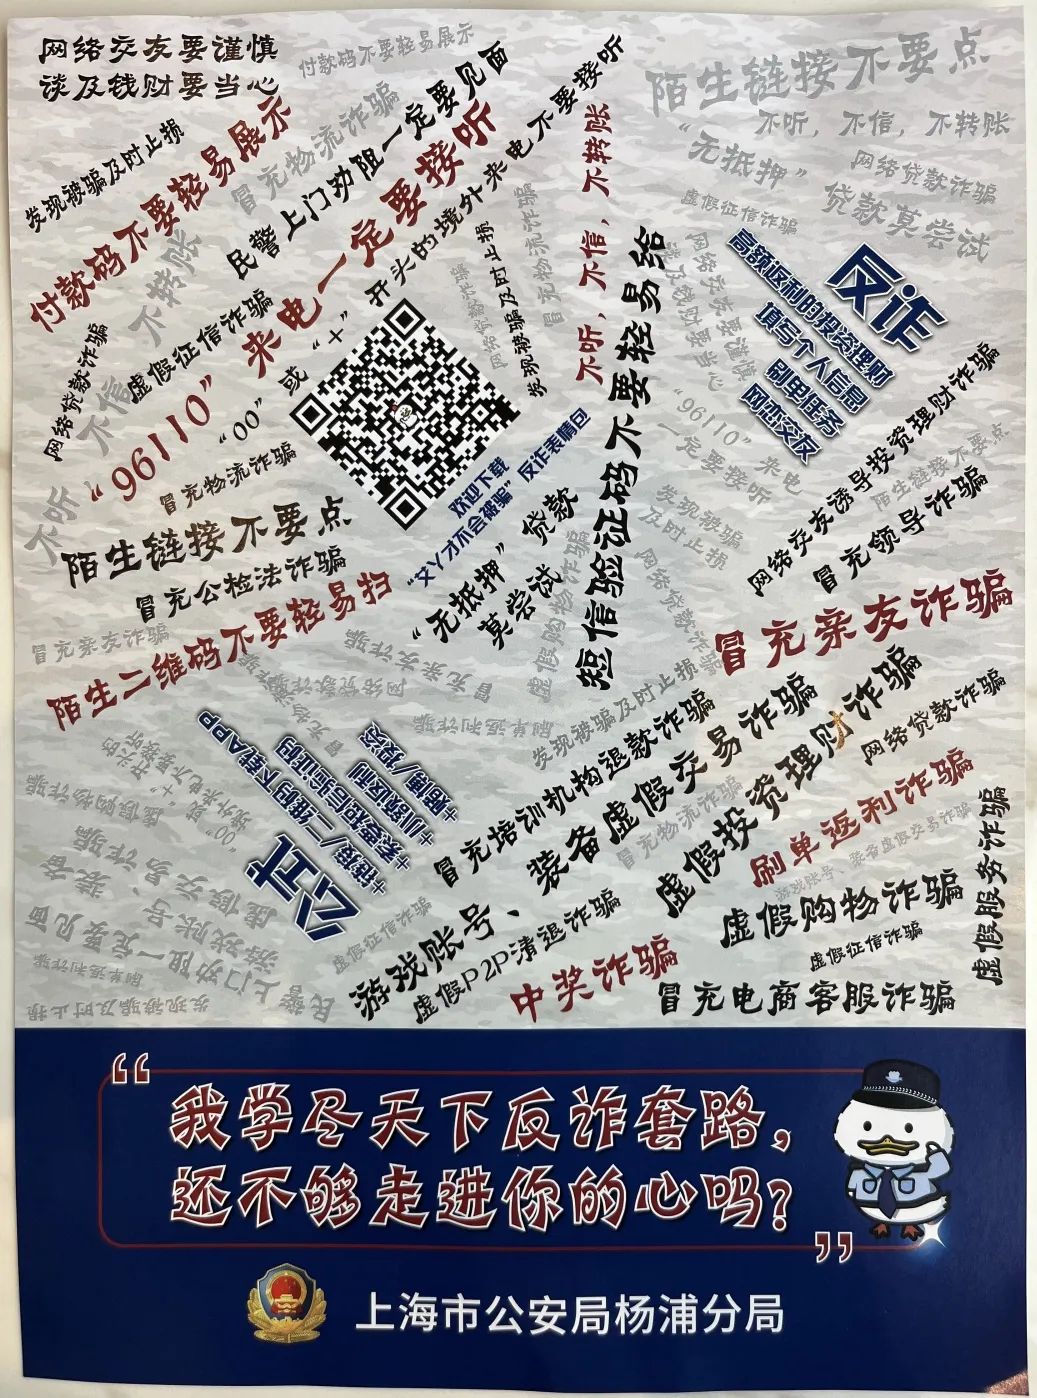 网络交友要谨慎
谈及钱财要当心
付款码不要轻易展示
陌生链接不要点
发现被骗及时止损
付款码不要轻易展示
冒充物流诈骗
民警上门劝阻一定要见面
“96110”来电一定要接听
“00”或“+”开头的境外来电不要接听
不听，不信，不转账
不听，不信，不转账
不听，不信，不转账
“无抵押”
贷款莫尝试
网络贷款诈骗
虚假征信诈骗
网络贷款诈骗
虚假征信诈骗
冒充物流诈骗
发现被骗及时止损
冒充物流诈骗
网络贷款诈骗
短信验证码不要轻易给
网络交友要谨慎
谈及钱财要当心
“96110”来电
一定要接听
发现被骗
及时止损
反诈
高额返利的投资理财
填写个人信息
刷单任务
网恋交友
欢迎下载
“艾丫才不会被骗”反诈表情包
“无抵押”贷款
莫尝试
虚假购物诈骗
网络贷款诈骗
网络交友诱导投资理财诈骗
陌生链接不要点
冒充领导诈骗
陌生链接不要点
冒充公检法诈骗
陌生二维码不要轻易扫
冒充亲友诈骗
冒充亲友诈骗
冒充亲友诈骗
网络贷款诈骗
刷单返利诈骗
发现被骗及时止损
公式
+链接/二维码下载APP
+索要短信验证码
+小额返利
+赌博/投资
“00”或“+”开头的
境外来电不要接听
虚假购物诈骗
游戏账号、装备
虚假交易诈骗
民警上门劝阻一定要见面
刷单返利诈骗
发现被骗及时止损
虚假征信诈骗
冒充培训机构退款诈骗
游戏账号、装备虚假交易诈骗
冒充物流诈骗
虚假投资理财诈骗
网络贷款诈骗
刷单返利诈骗
游戏账号、装备虚假交易诈骗
虚假P2P清退诈骗
中奖诈骗
虚假购物诈骗
虚假征信诈骗
冒充电商客服诈骗
虚假服务诈骗
“我学尽天下反诈套路，
还不够走进你的心吗？”
上海市公安局杨浦分局